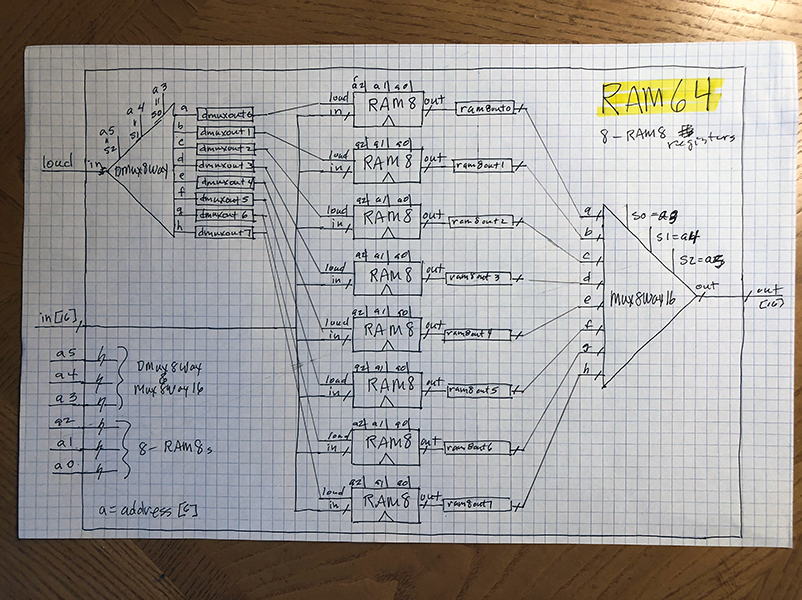 RAM64
8 - RAM8 registers
load
in
a5 = S2
a4 = S1
a3 = S0
DMux8Way
a dmuxout0
b dmuxout1
c dmuxout2
d dmuxout3
e dmuxout4
f dmuxout5
g dmuxout6
h dmuxout7
a2 a1 a0
load RAM8 out ram8out0
in
a2 a1 a0
load RAM8 out ram8out1
in
a2 a1 a0
load RAM8 out ram8out2
in
a2 a1 a0
load RAM8 out ram8out3
in
a2 a1 a0
load RAM8 out ram8out4
in
a2 a1 a0
load RAM8 out ram8out5
in
a2 a1 a0
load RAM8 out ram8out6
in
a2 a1 a0
load RAM8 out ram8out7
in
a
b
c
d
e
f
g
h
S0 = a3
S1 = a4
S2 = a5
Mux8Way16
out
out
[16]
in[16]
a5
a4
a3
DMux8Way
&
Mux8Way16
a2
a1
a0
8 - RAM8s
a = address[6]